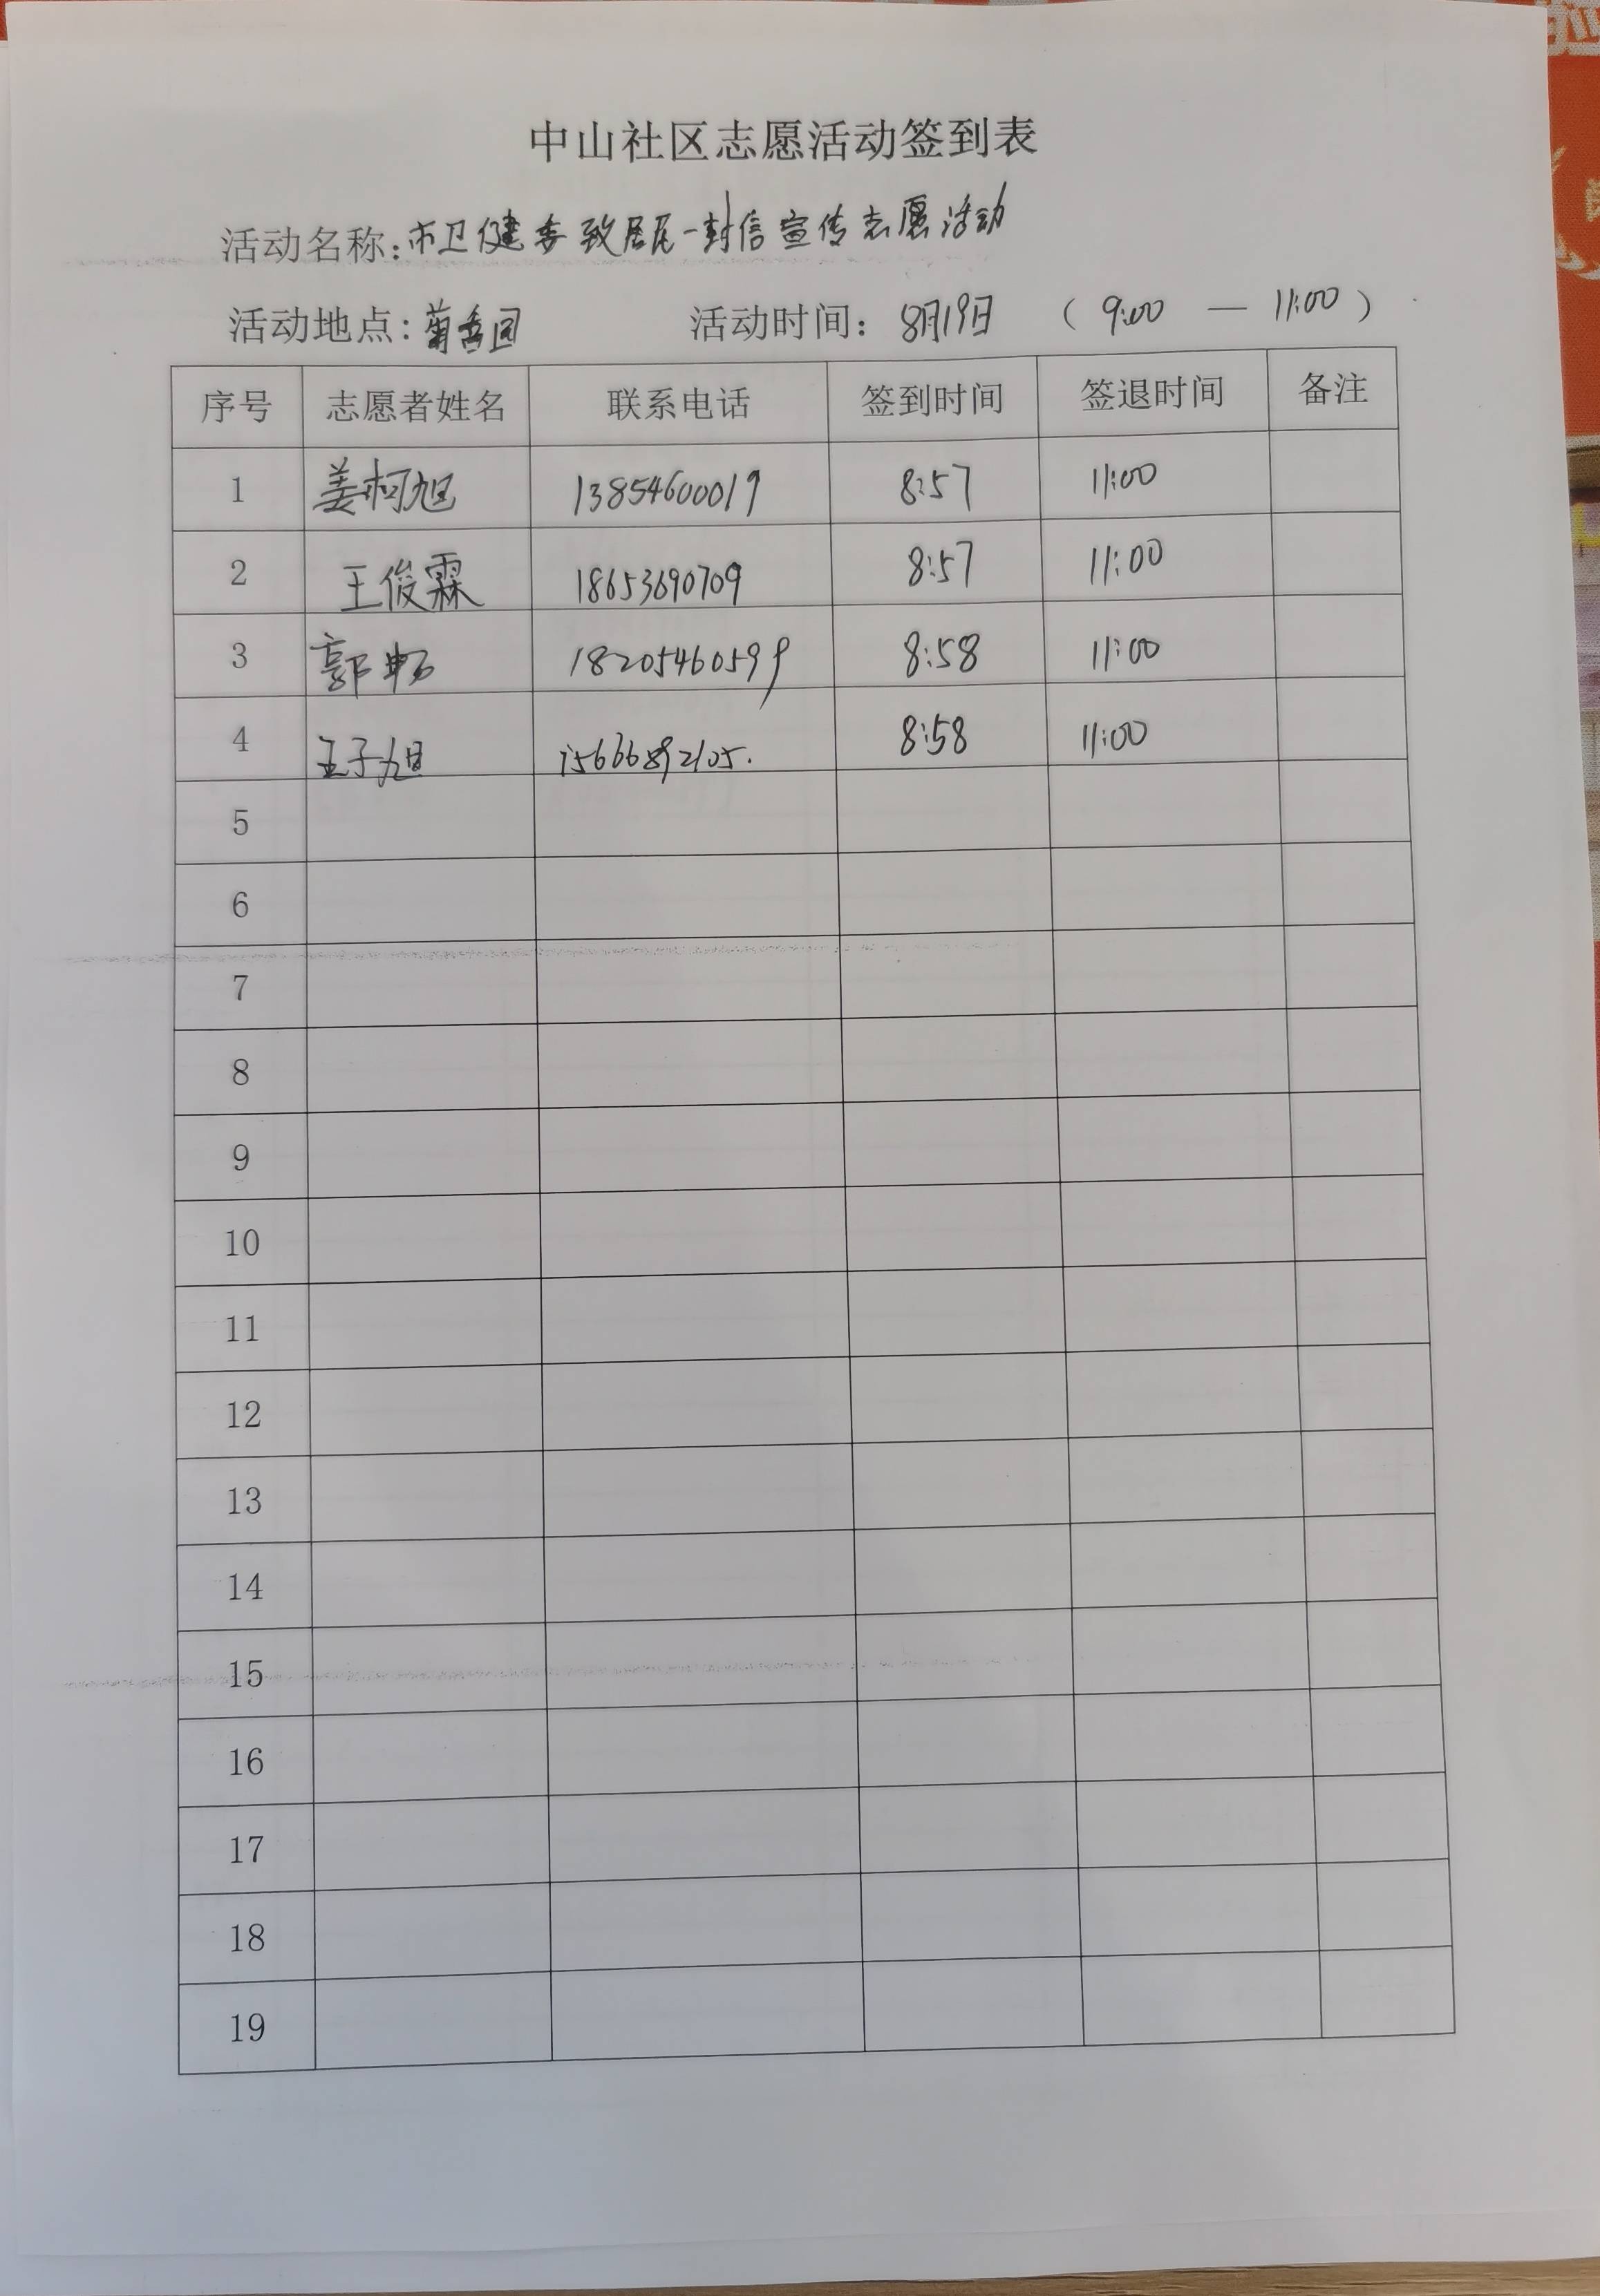 中山社区志愿活动签到表
活动名称:市卫健委致居民一封信宣传志愿活动
活动地点:菊香园 活动时间: 8月19日 ( 9:00 — 11:00 )
序号 志愿者姓名 联系电话 签到时间 签退时间 备注
1 姜柯旭 13854600019 8:57 11:00
2 王俊霖 18653690709 8:57 11:00
3 郭畅 18205460599 8:58 11:00
4 王子旭 15666892105. 8:58 11:00
5
6
7
8
9
10
11
12
13
14
15
16
17
18
19